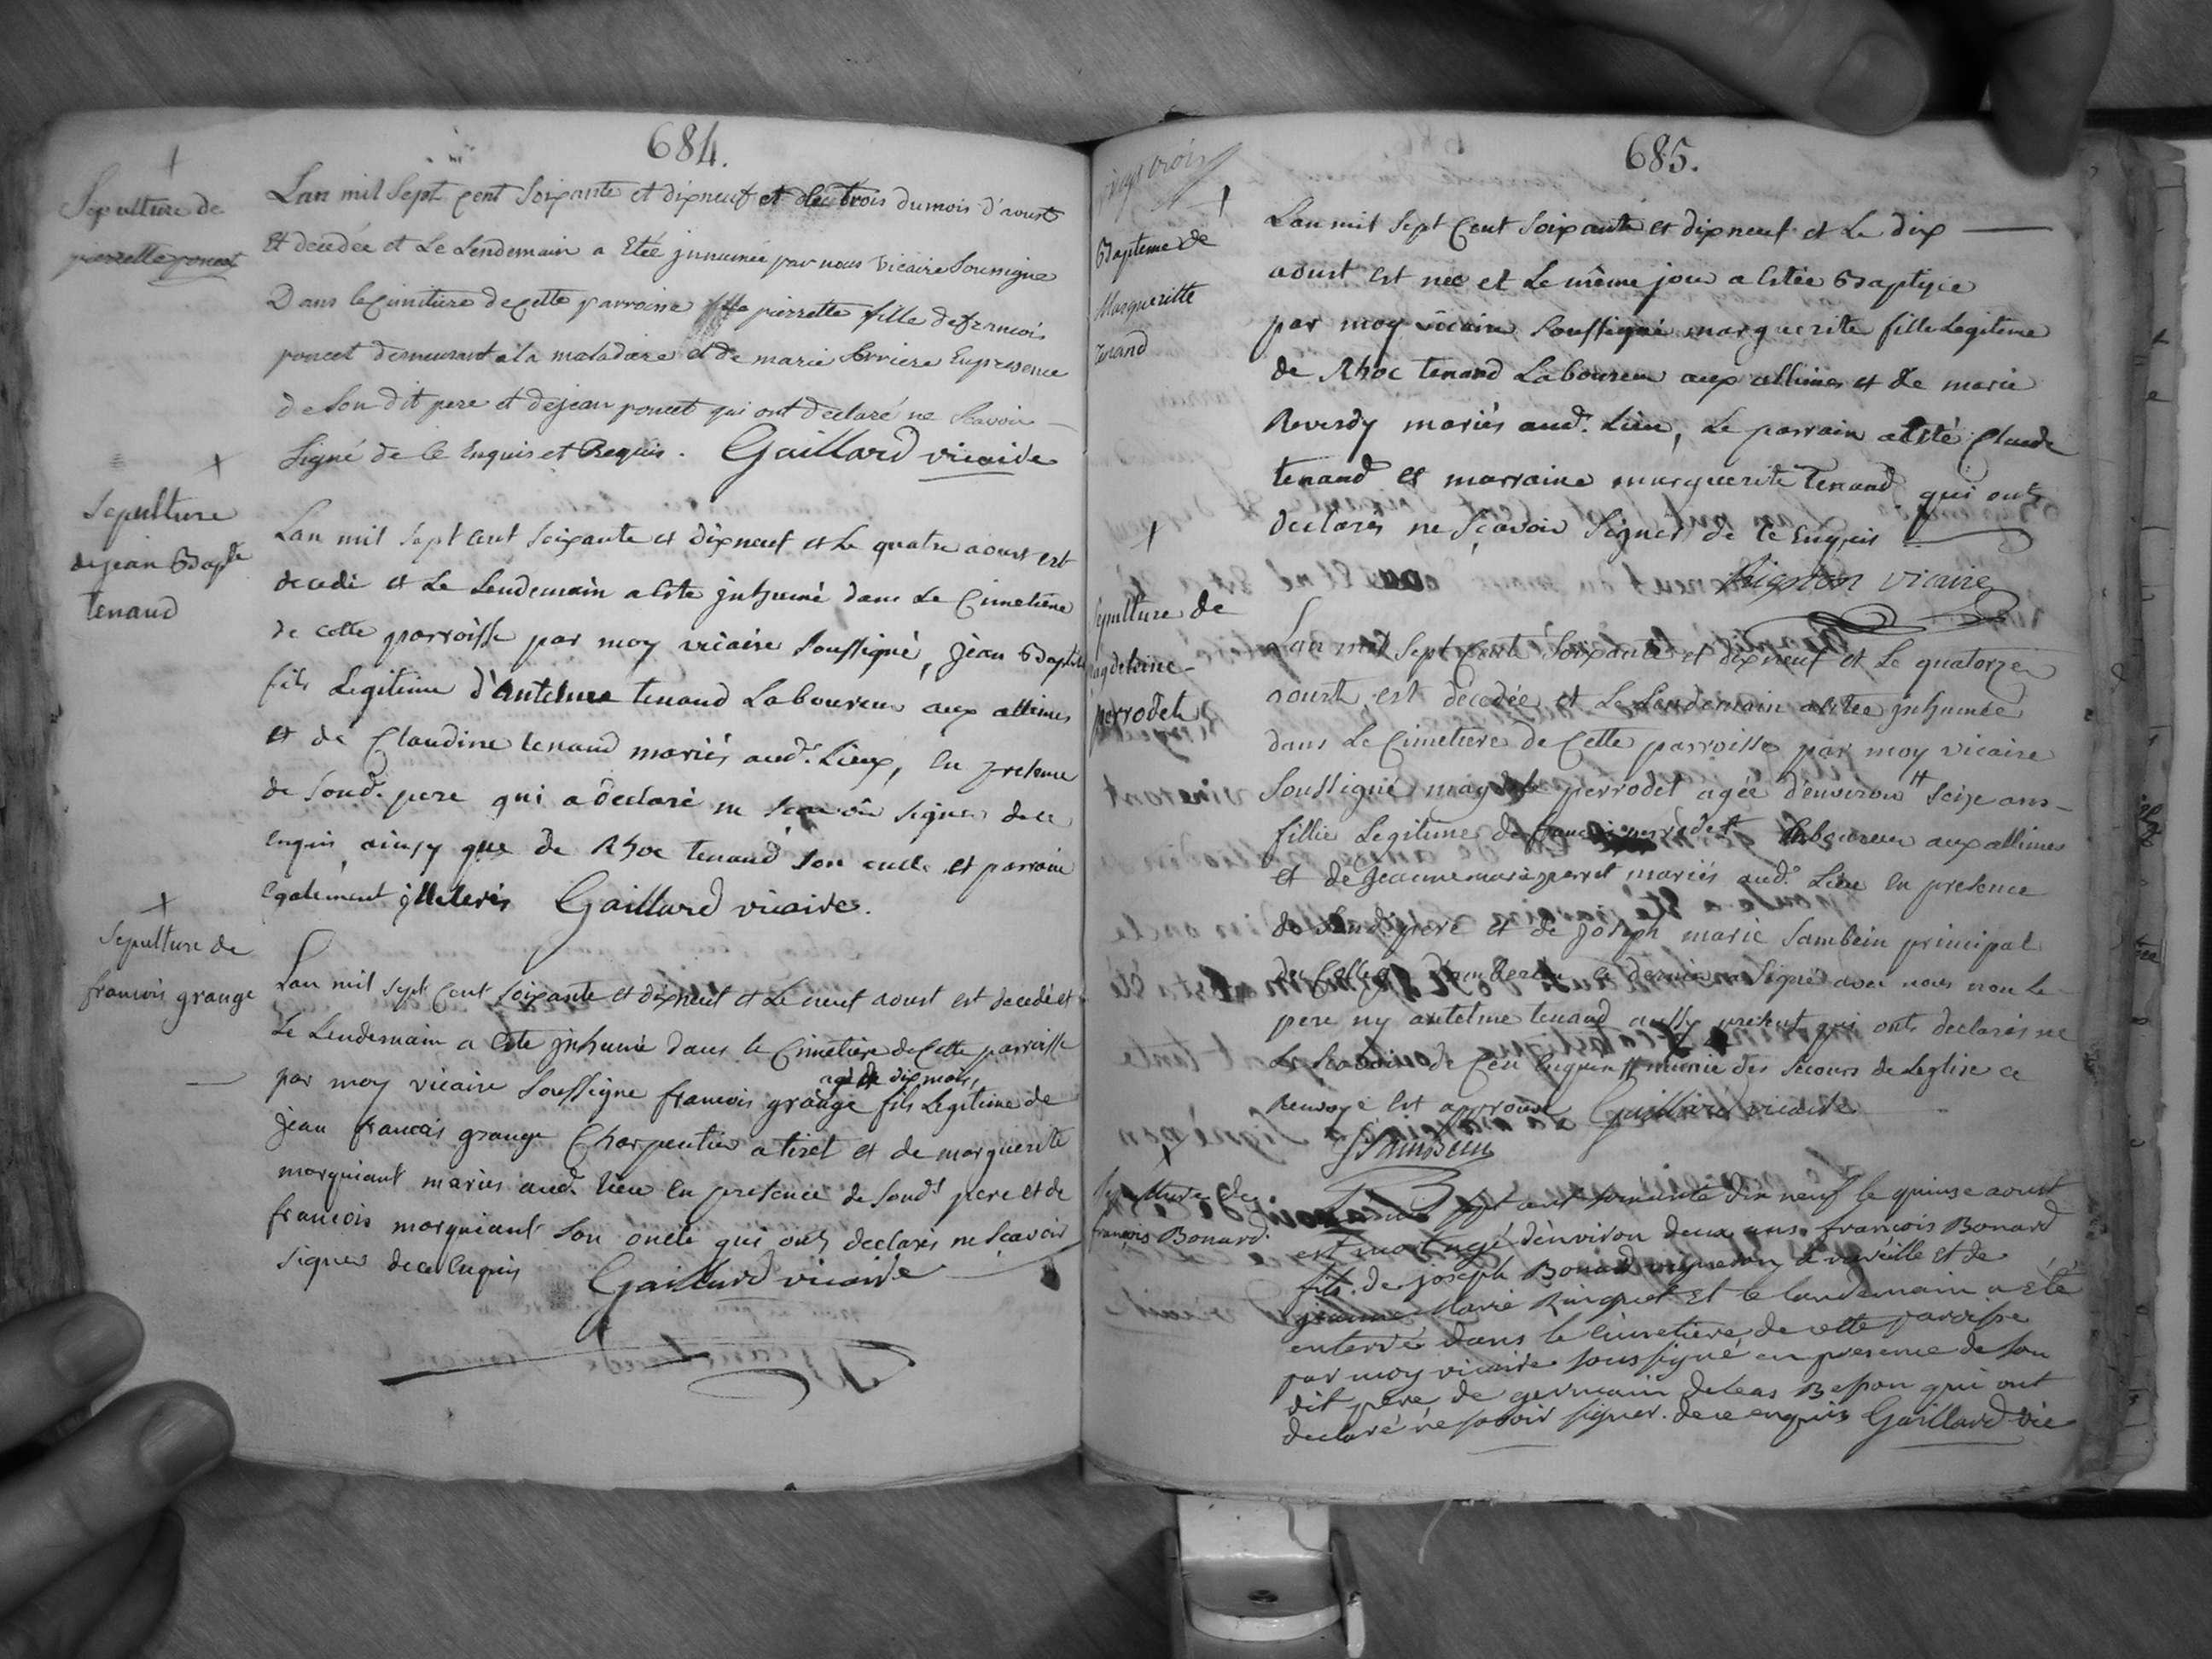 684.
Sepulture de
pierrette poncet
Lan mil Sept cent Soixante et dixneuf et le trois du mois d'aoust
Et decedée et Le Lendemain a Etée jnhumée par nous Vicaire Soussigne
Dans le Cimitiere de Cette parroisse pierrette fille de francois
poncet demeurant a la maladiere et de marie Enpresence
de Son dit pere et de jean poncet qui ont declaré ne Scavoir
Signé de ce Enquis et Requis. Gaillard vicaire
Sepulture
de jean Bapte
tenand
Lan mil Sept Cent Soixante et dixneuf et Le quatre aoust est
decedé et Le Lendemain a esté jnhumé dans Le Cimetiere
de cette parroisse par moy vicaire Soussigné, jean Baptiste
fils Legitime d'Antelme tenand Laboureur aux allimes
et de Claudine tenand mariés aud. Lieux, en presence
de Sond. pere qui a declaré ne Scavoir signer de ce
enquis ainsy que de Rhoc tenand Son oncle et parrain
egalement jlleterés Gaillard vicaire.
Sepulture de
francois grange
Lan mil Sept Cent Soixante et dixneuf et Le neuf aoust est decedé et
Le Lendemain a esté jnhumé dans le Cimetiere de Cette parroisse
agé de dix mois,
par moy vicaire Soussigne francois grange fils Legitime de
jean francois grange Charpentier a tiret et de marguerite
morguiant mariés aud. lieu en presence de Sondt pere et de
francois morguiant Son oncle qui onts declarés ne Scavoir
signer de ce Enquis Gaillard vicaire
685.
vingt trois
Bapteme de
Margueritte
Tenand
Lan mil Sept Cent Soixante et dixneuf et Le dix
aoust est nee et Le même jour a estée Baptisée
par moy vicaire Soussigné marguerite fille Legitime
de Rhoc tenand Laboureur aux allimes et de marie
Reverdy mariés aud. Lieu, Le parrain a esté Claude
tenand et marraine marguerite Tenand qui onts
declarés ne Scavoir Signer de ce Enquis
vicaire
Sepulture de
magdeleine
perrodet
Lan mil Sept Cent Soixante et dixneuf et Le quatorze
aoust est decedée et Le Lendemain a estee jnhumée
dans Le Cimetiere de Cette parroisse par moy vicaire
Soussigné perrodet agée d'environ # Seize ans
fillie Legitime de perrodet Laboureur aux allimes
et de jeanne marie perret mariés aud. Lieu en presence
de Sond. pere et de joseph marie Sambein principal
du College d'amberieu ce dernier a Signé avec nous non Le
pere ny antelme tenand aussy present qui onts declarés ne
Le Scavoir de Ceu Enquis # munie des Secours de Leglise ce
Renvoyé est approuvé Gaillard vicaire
Sambein
Sepulture de
françois Bonard.
L'an mil sept cent soixante dix neuf le quinze aoust
est mort agé d'environ deux ans francois Bonard
fils de joseph Bonard vigneron a vareille et de
jeanne Marie et le landemain a eté
enterré dans le cimetiere de cette paroisse
par moy vicaire soussigné en presence de son
dit pere de germain qui ont
declaré ne savoir signer de ce enquis Gaillard vic